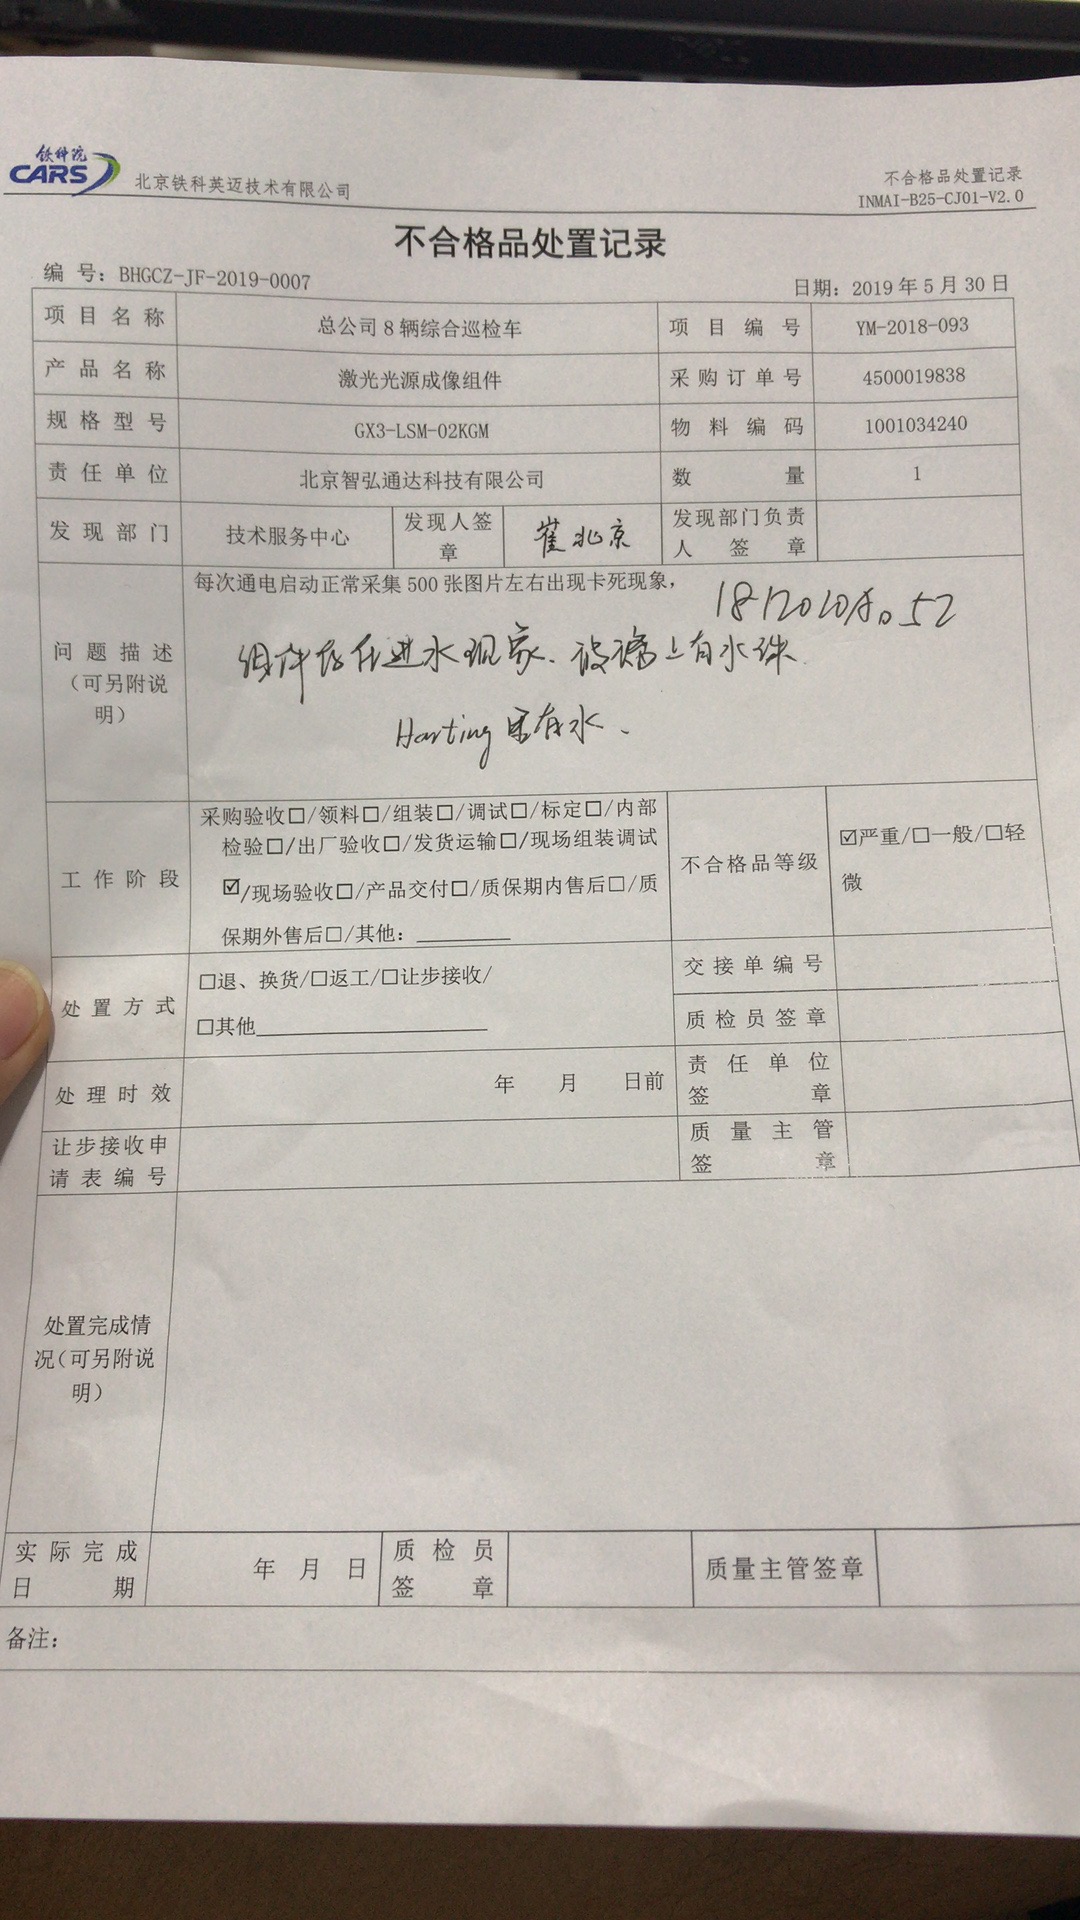 铁科院
CARS
北京铁科英迈技术有限公司
不合格品处置记录
INMAI-B25-CJ01-V2.0
不合格品处置记录
编 号：BHGCZ-JF-2019-0007
日期：2019 年 5 月 30 日
项目名称 总公司 8 辆综合巡检车 项目编号 YM-2018-093
产品名称 激光光源成像组件 采购订单号 4500019838
规格型号 GX3-LSM-02KGM 物料编码 1001034240
责任单位 北京智弘通达科技有限公司 数量 1
发现部门 技术服务中心 发现人签章 崔北京 发现部门负责人签章
问题描述
（可另附说
明）
每次通电启动正常采集 500 张图片左右出现卡死现象，
组件存在进水现象、玻璃上有水珠
Harting 里有水、
工作阶段
采购验收□/领料□/组装□/调试□/标定□/内部
检验□/出厂验收□/发货运输□/现场组装调试
☑/现场验收□/产品交付□/质保期内售后□/质
保期外售后□/其他：
不合格品等级
☑严重/□一般/□轻
微
处置方式
□退、换货/□返工/□让步接收/
□其他
交接单编号
质检员签章
处理时效 年 月 日前
责任单位
签章
让步接收申
请表编号
质量主管
签章
处置完成情
况（可另附说
明）
实际完成
日期
年 月 日
质检员
签章
质量主管签章
备注：